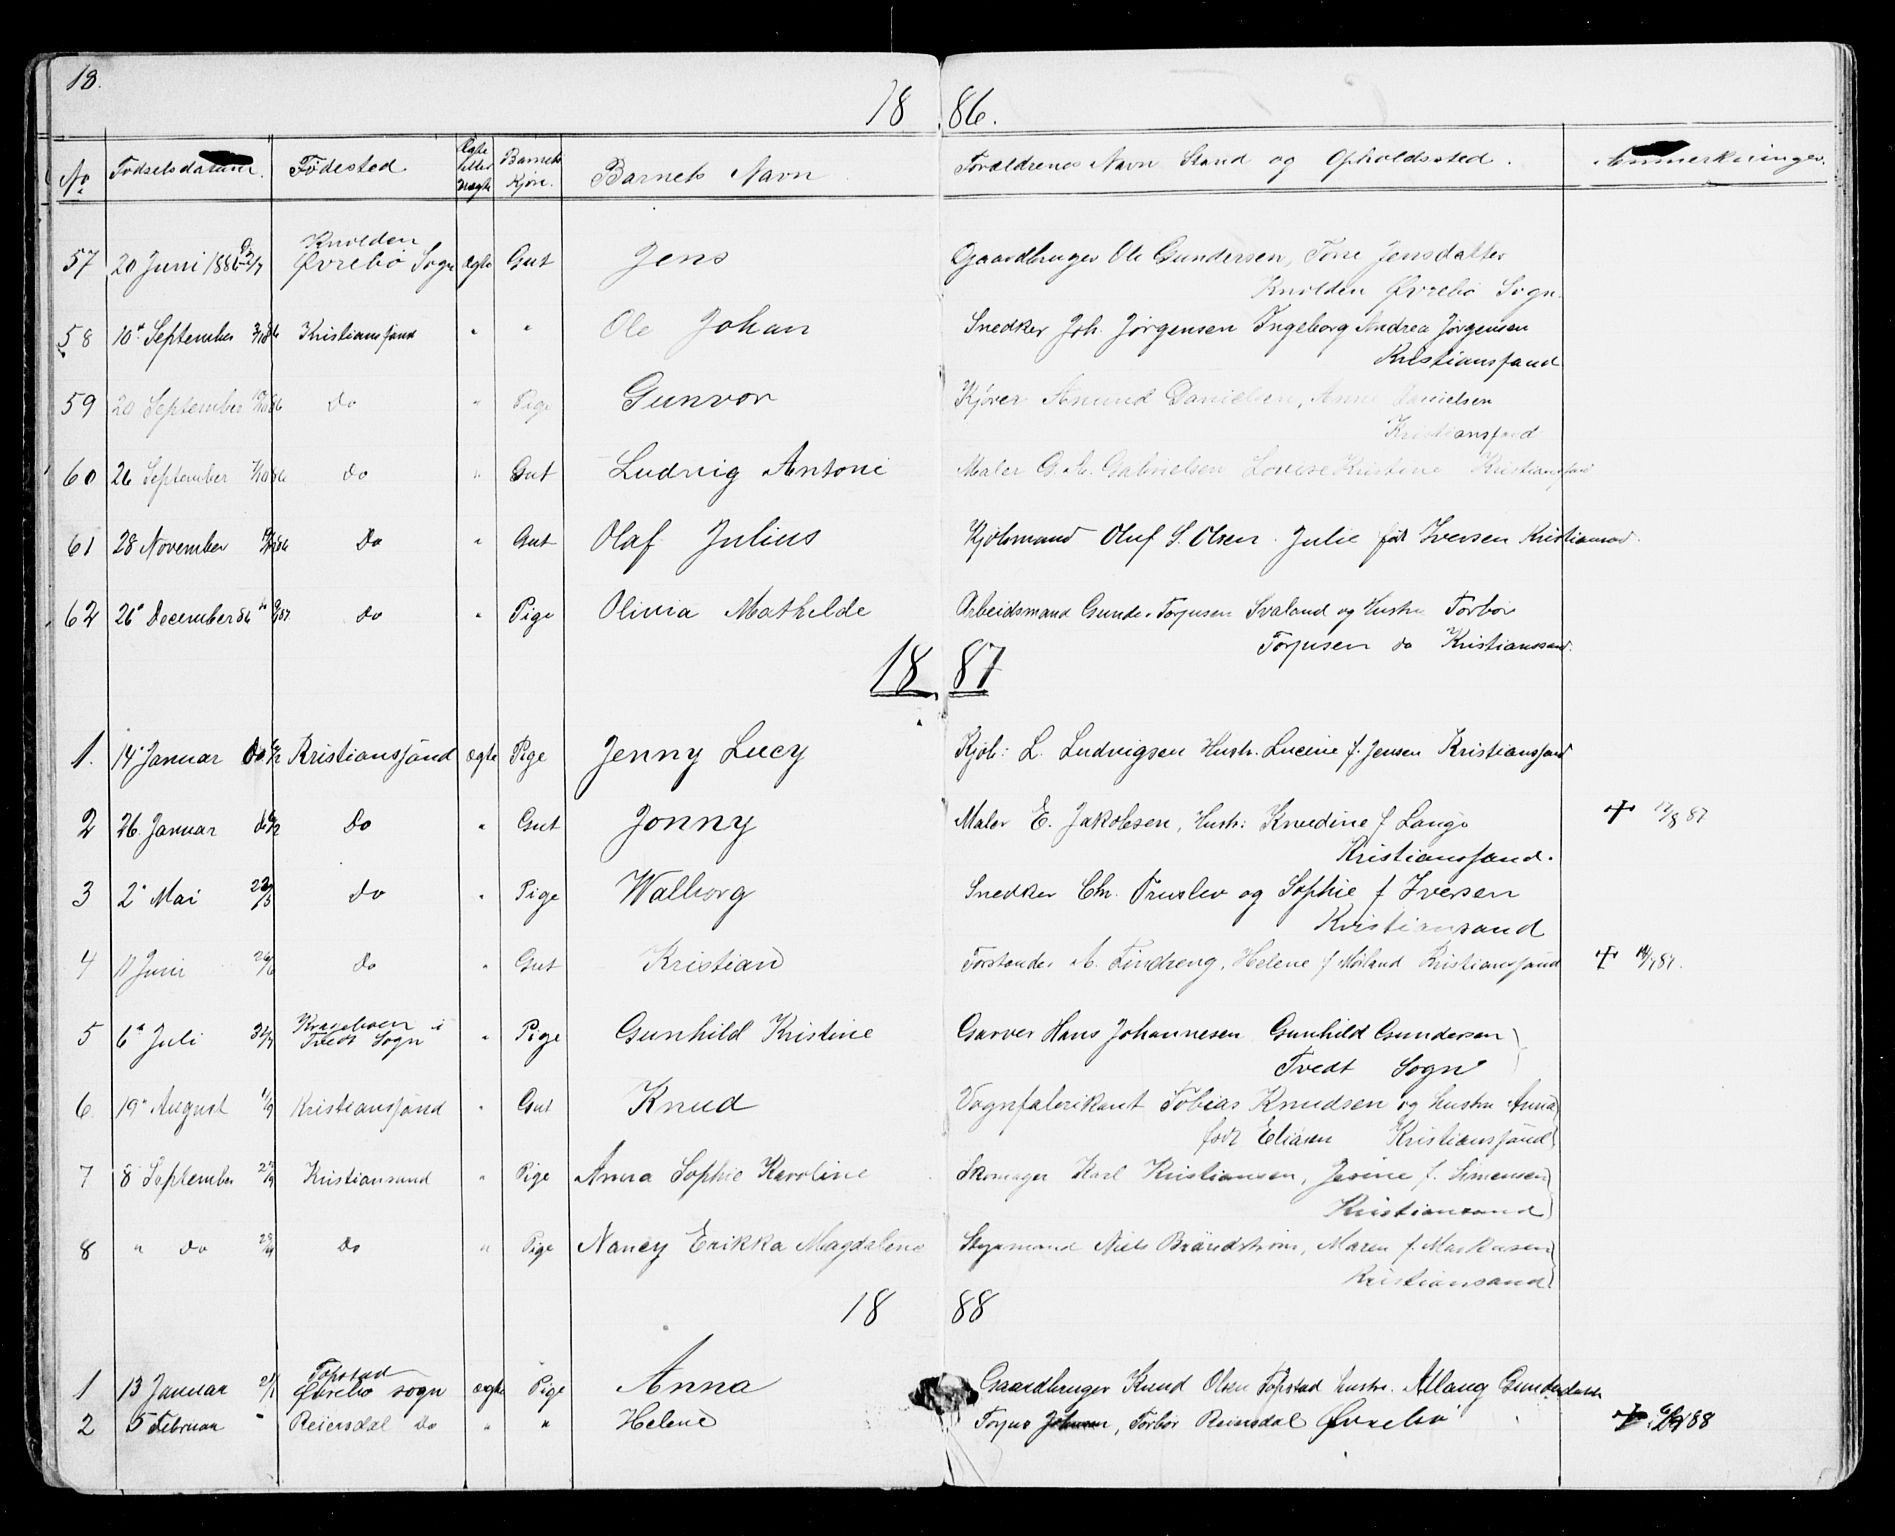 18.
18 86.
No Fødselsdatum. Fødested Ægte eller uægte Barnets Kjøn. Barnets Navn Forældrenes Navn Stand og Opholdssted. Anmerkninger.
Knolden
57 20 Juni 1886 Øvrebø Sogn Ægte Gut Jens Gaardbruger Ole Gundersen, Tone Jensdatter
Knolden Øvrebø Sogn.
58 10" September Kristianssand " " Ole Johan Snedker Joh. Jørgensen Ingeborg Andrea Jørgensen
Kristianssand
59 20 September Do " Pige Gunvor Kjører Amund Danielsen, Anne Danielsen
Kristianssand
60 26 September Do " Gut Ludvig Antoni Maler G. A. Gabrielsen Lovise Kristine Kristianssand
61 28 November Do " Gut Olaf Julius Kjøbmand Oluf S. Olsen. Julie født Iversen Kristianssand.
62 26" December 86 Do " Pige Olivia Mathilde Arbeidsmand Gunder Torjusen Svaland og Hustru Torbor
Torjusen do Kristianssand.
18 87
1. 14" Januar Do Kristianssand ægte Pige Jenny Lucy Kjøb: L. Ludvigsen Hustr. Lucine f. Jensen Kristianssand
2 26. Januar Do " Gut Jonny Maler E. Jakobsen, Hustr: Knudine f Lange + 12/8 87
Kristianssand.
3 2" Mai 22/5 Do " Pige Walborg Snedker Chr. Truslev og Sophie f Iversen
Kristiansand
4 11 Juni 26/6 Do " Gut Kristian Forstander A. Lindreng, Helene f Mørland Kristianssand + 14/7 87.
i
5 6" Juli 31/7 Tvedt Sogn " Pige Gunhild Kristine Garver Hans Johannesen Gunhild Gundersen
Tvedt Sogn
6. 19" August 11/9 Kristianssand " Gut Knud Vognfabrikant Tobias Knudsen og Hustru Anna
født Eliasen Kristianssand
7 8 September 25/9 Kristiansund " Pige Anna Sophie Karoline Skomager Karl Kristiansen, Josine f. Simensen
Kristiansand
8 " do 25/9 Do " Pige Nancy Erikka Magdalene Styrmand Niels Brändstrøm, Maren f. Markusen
Kristiansand
18 88
Topstad
1 13 Januar 21/1 Øvrebø sogn ægte Pige Anna Gaardbruger Knud Olsen Topstad hustru. Allaug Gundersdatter
2 5 Februar " Reiersdal Do " " Helene Torjus Johnsen, Torbor Reiersdal Øvrebø + 88